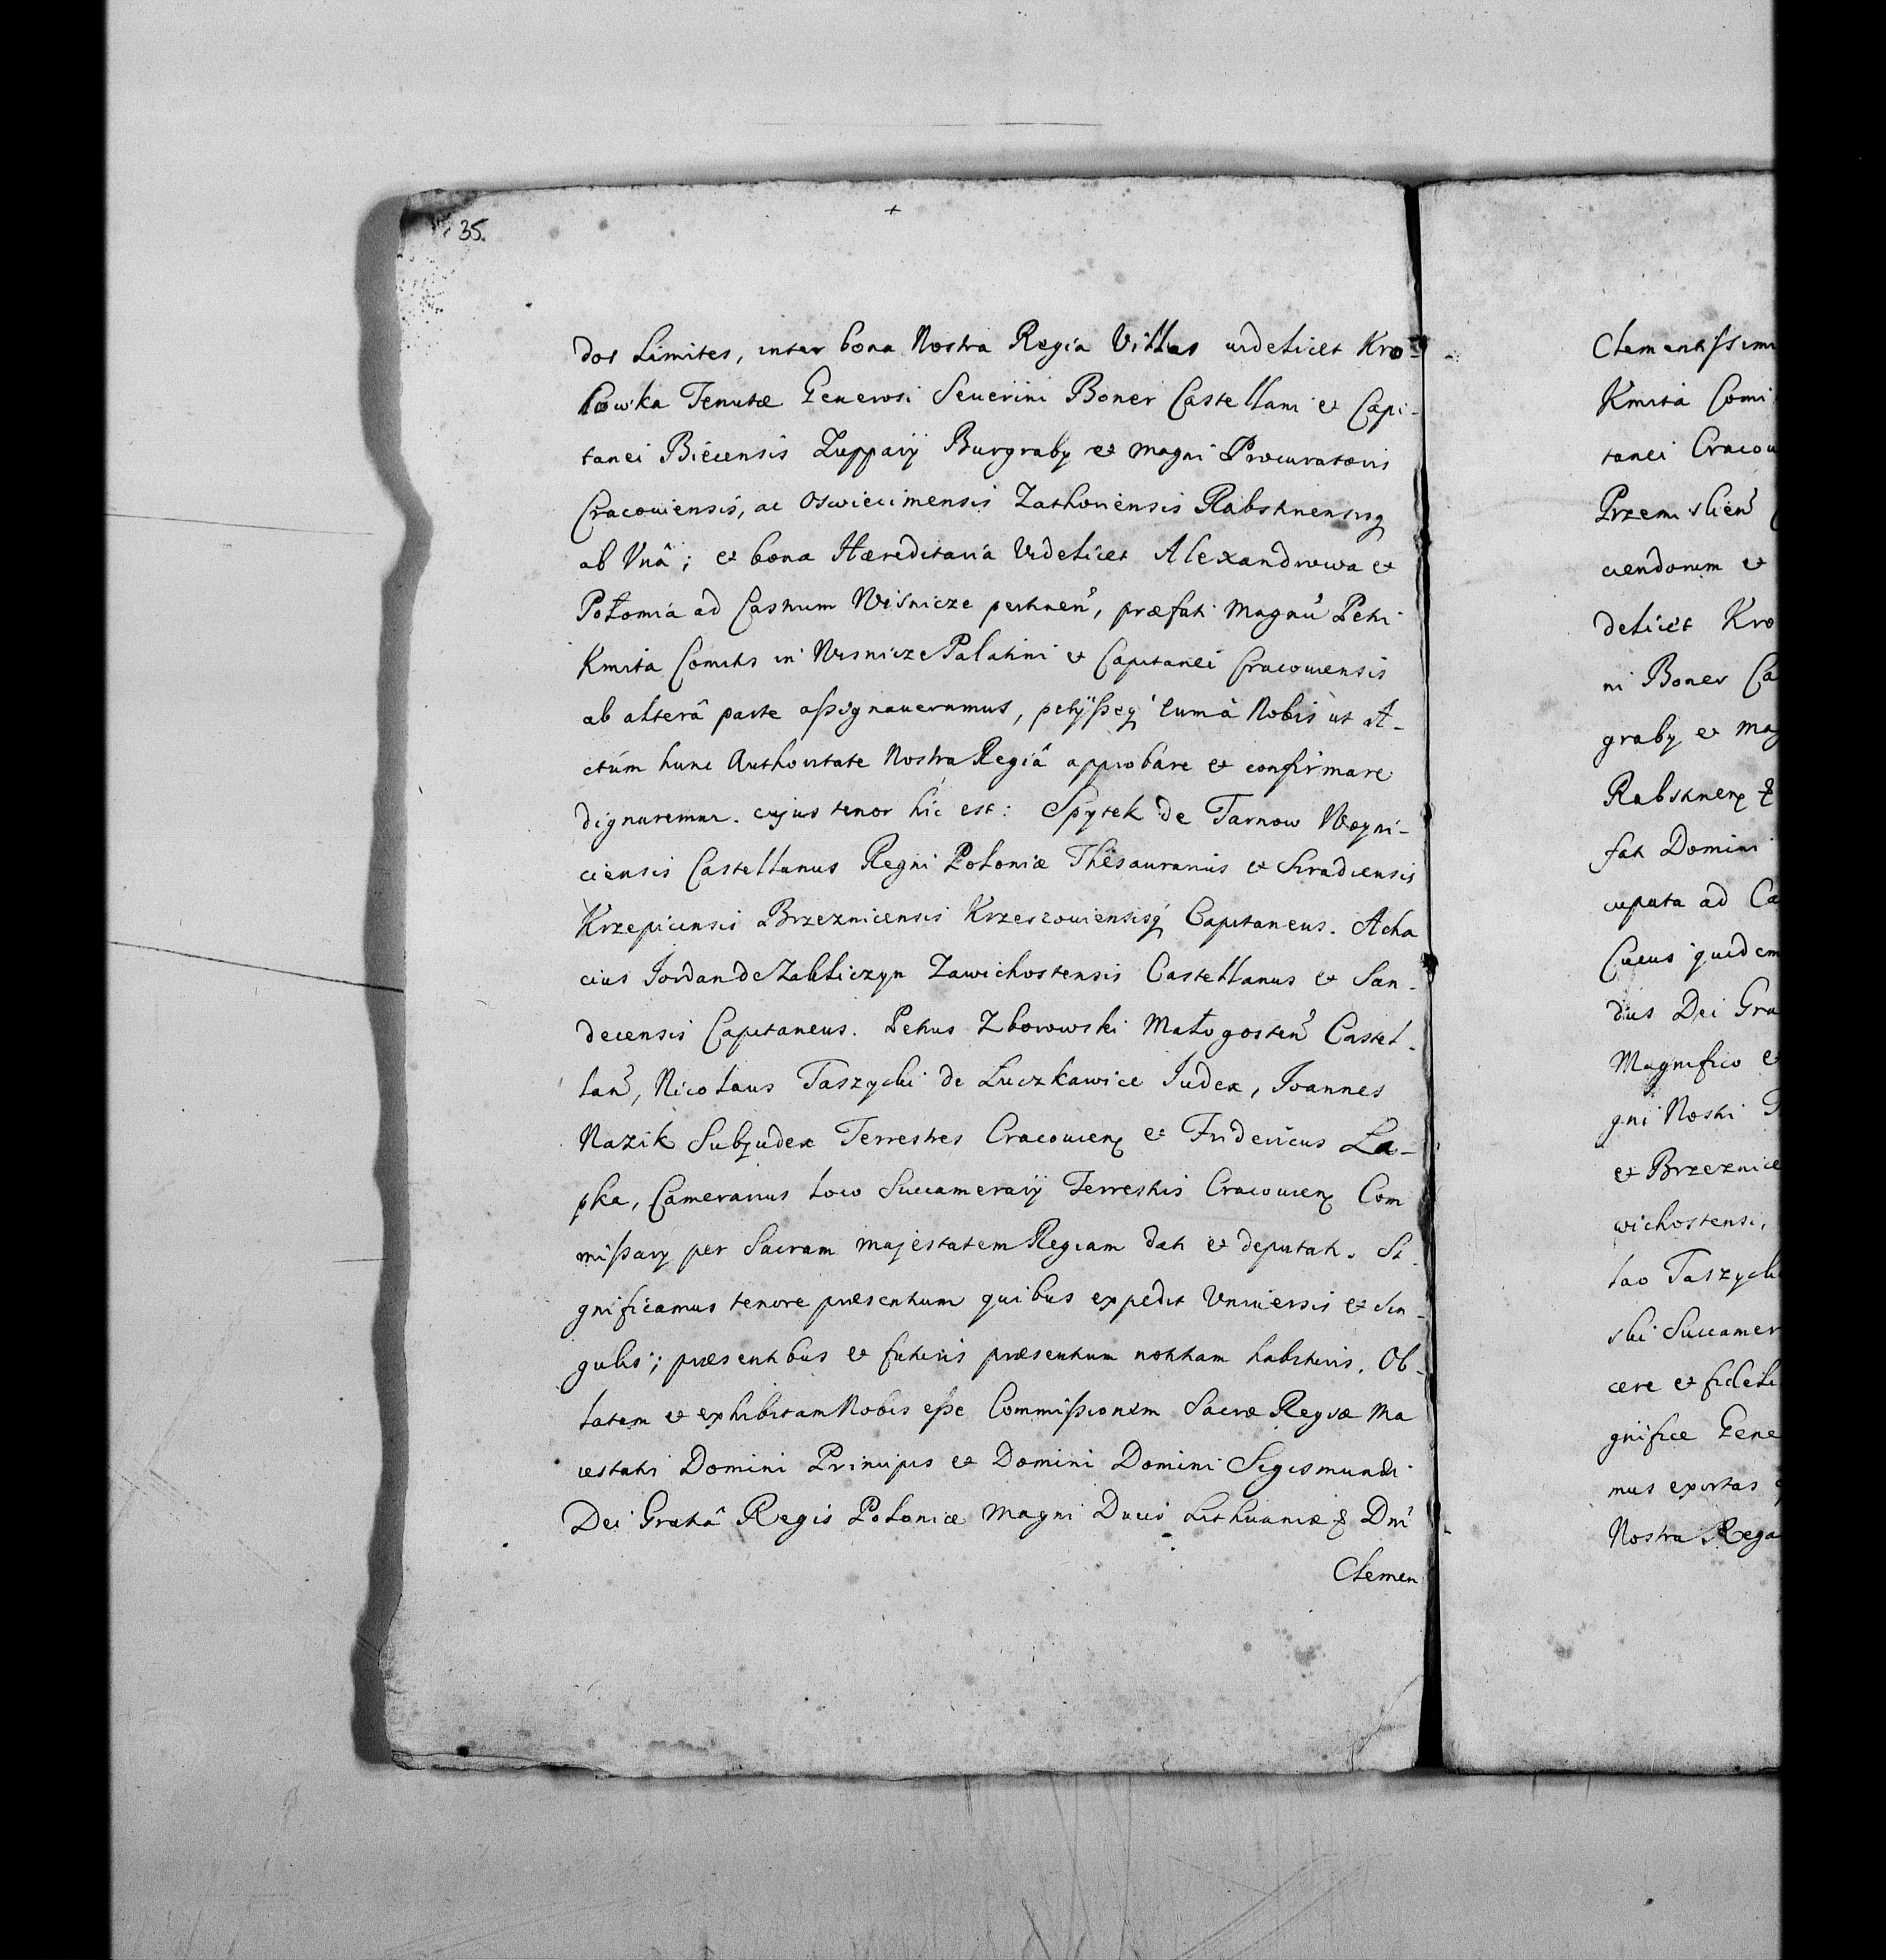 35.
dos Limites, inter bona Nostra Regia Villas videlicet Kro-
lowka Tenutæ Generosi Seuerini Boner Castellani et Capi-
tanei Biecensis Zupparij Burgrabij et Magni Procuratoris
Cracouiensis, ac Oswiecimensis Zathoriensis Rabsthnensisq
ab Vnâ; et bona Hæreditaria Videlicet Alexandrowa et
Połomia ad Castrum Wisnicze pertinen, præfati Magnci Petri
Kmita Comitis in Wisnicze Palatini et Capitanei Cracouiensis
ab alterâ parte assignauerimus, petijsseq cum à Nobis ut A-
ctum hunc Authoritate Nostra Regiâ approbare et confirmare
dignaremur. cujus tenor hic est: Spytek de Tarnow Woyni-
ciensis Castellanus Regni Poloniæ Thesaurarius et Siradiensis
Krzepicensis Brzeznicensis Krzeszouiensisq Capitaneus. Acha
cius Jordan de Zakliczyn Zawichostensis Castellanus et San-
decensis Capitaneus. Petrus Zborowski Małogosten Castel-
lan, Nicolaus Taszycki de Luczkawice Judex, Joannes
Nazik Subjudex Terrestres Cracouien et Fridericus La-
pka, Camerarius loco Succamerarij Terrestris Cracouien Com
missarij per Sacram Majestatem Regiam dati et deputati. Si-
gnificamus tenore præsentium quibus expedit Vniuersis et Sin-
gulis; præsentibus et futuris præsentium notitiam habituris. Ob-
latam et exhibitam Nobis esse Commissionem Sacræ Regiæ Ma
iestatis Domini Principis et Domini Domini Sigismundi
Dei Gratiâ Regis Poloniæ Magni Ducis Lithuaniæ & Dni
Clemen
Clementissimi
Kmita Comi
tanei Cracou
Przemislien
ciendorum et
delicet Kro
ni Boner Ca
graby et Mag
Rabsthnen
fati Domini
cuputa ad Ca
Cuius quidem
dus Dei Gra
Magnifico et
gni Nostri T
et Brzeznice
wichostensi,
lao Taszycki
ski Succamer
cere et fideli
gnifice Gene
mus exortas
Nostra Rega